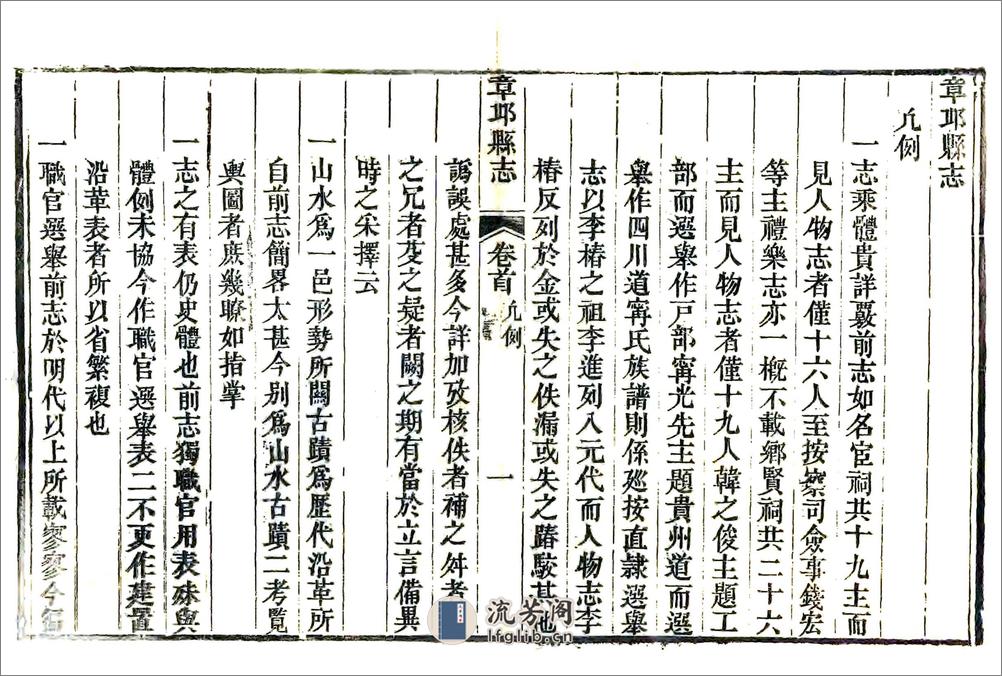 章邱縣志
凡例
一志乘體貴詳覈前志如名宦祠共十九主而
見人物志者僅十六人至按察司僉事錢宏
等主禮樂志亦一概不載鄉賢祠共二十六
主而見人物志者僅十九人韓之俊主題工
部而選舉作戸部甯光先主題貴州道而選
舉作四川道甯氏族譜則係廵按直隷選舉
志以李椿之祖李進列入元代而人物志李
椿反列於金或失之佚漏或失之踳駮其他
章邱縣志
卷首
凡例
一
譌誤處甚多今詳加攷核佚者補之舛者
之冗者芟之疑者闕之期有當於立言備異
時之采擇云
一山水爲一邑形勢所關古蹟爲歷代沿革所
自前志簡畧太甚今別爲山水古蹟二考覽
輿圖者庶幾瞭如指掌
一志之有表仍史體也前志獨職官用表殊與
體例未協今作職官選舉表二不更作建置
沿革表者所以省繁複也
一職官選舉前志於明代以上所載寥寥今
流芳阁
lfglib.cn